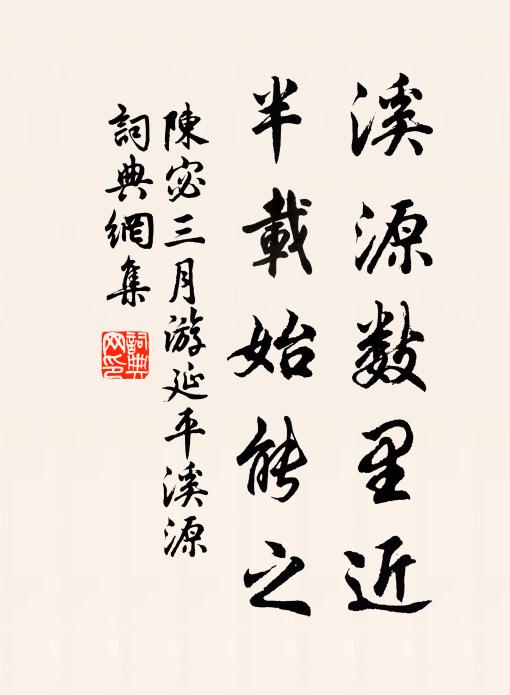 溪源数里近
半載始能之
陳宓三月游延平溪源
詞典網集
詞典網印